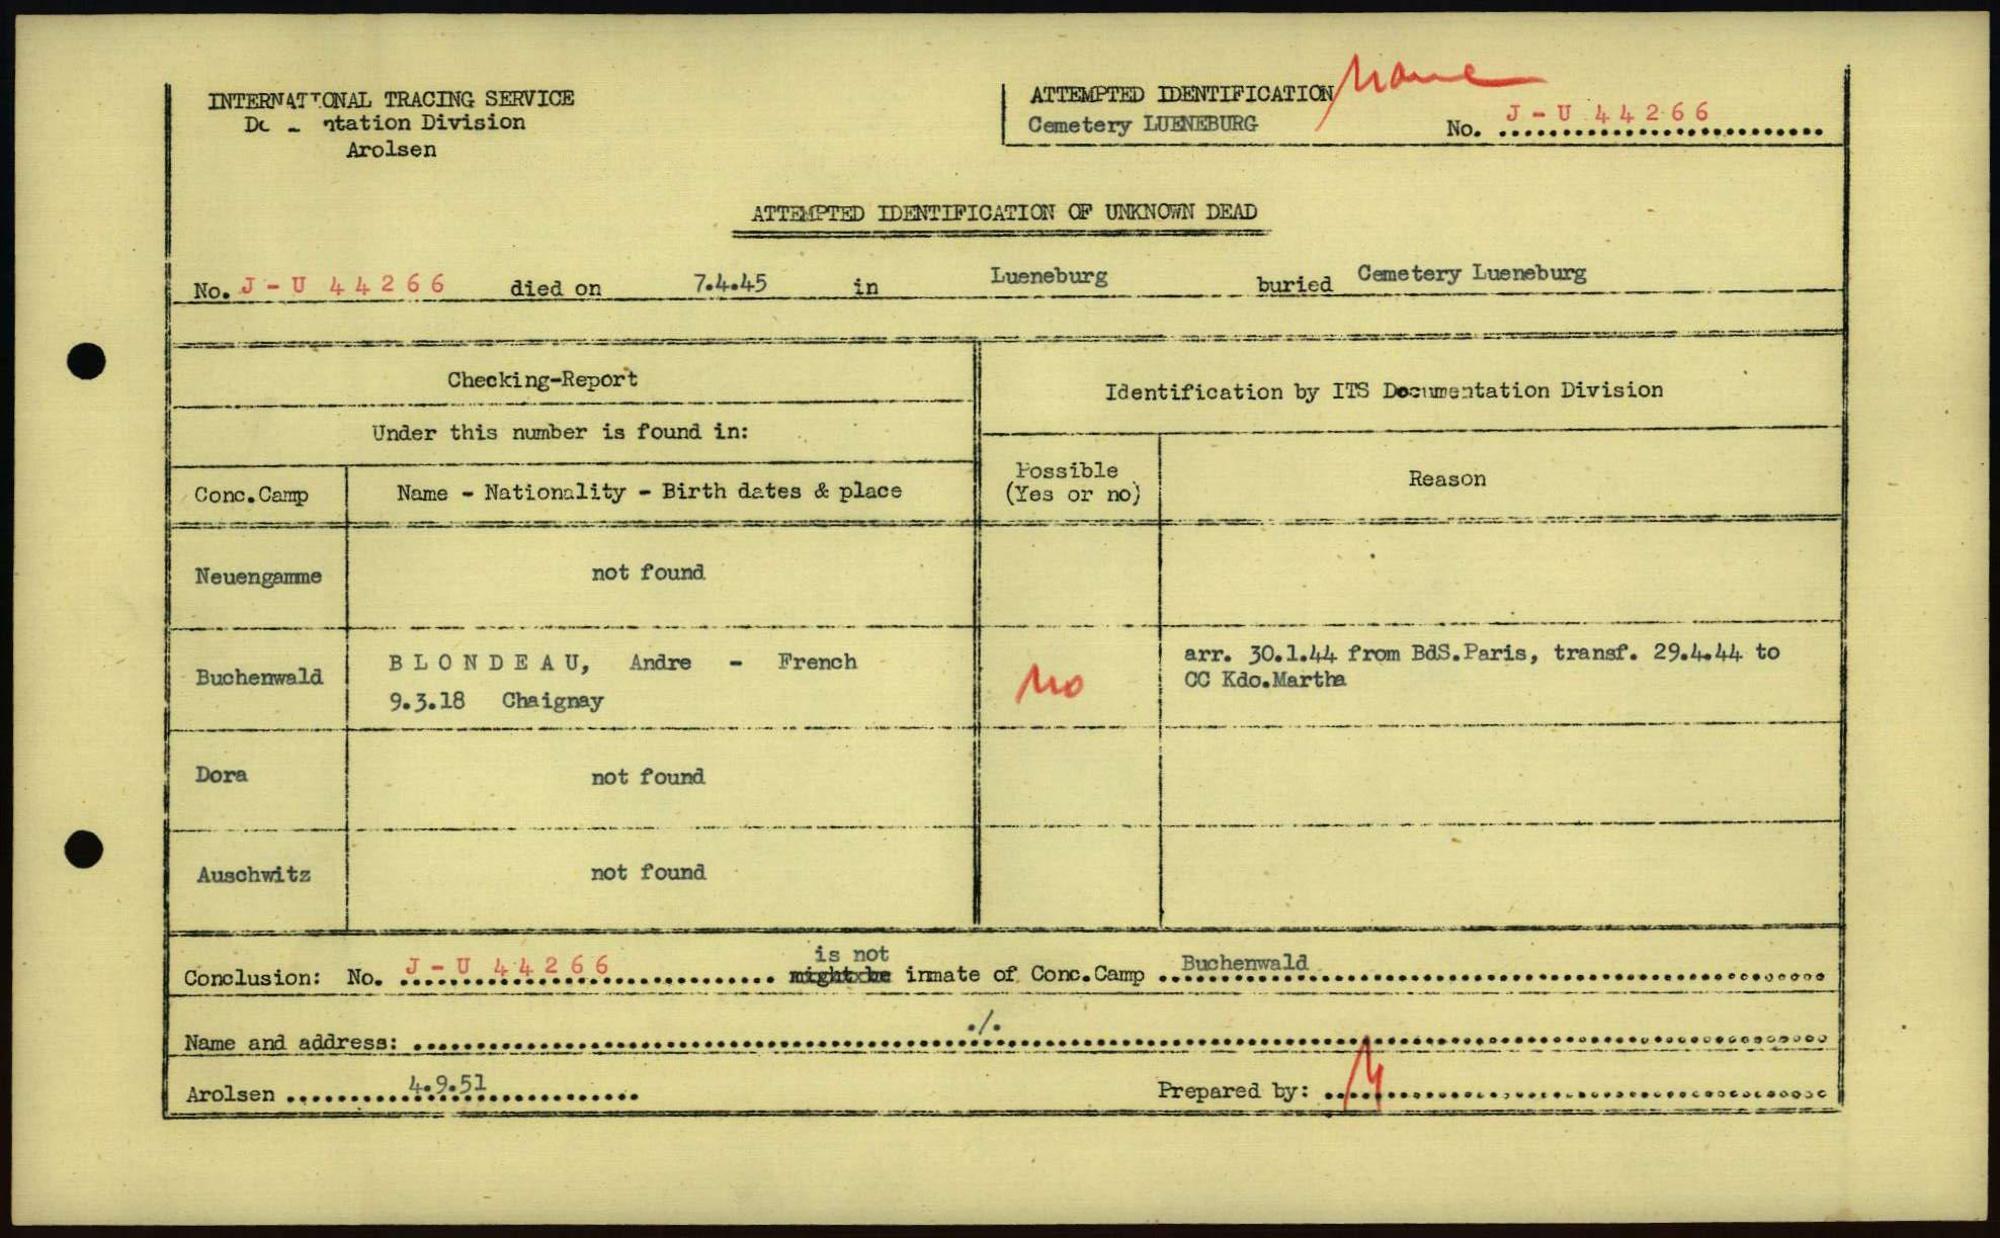 INTERNATIONAL TRACING SERVICE
Division
Arolsen
ATTEMPTED IDENTIFICATION
Cemetery LUENEBURG
No. J-U 44266
ATTEMPTED IDENTIFICATION OF UNKNOWN DEAD
No. J-U 44266 died on 7.4.45 in Lueneburg buried Cemetery Lueneburg
Checking-Report
Identification by ITS Documentation Division
Under this number is found in:
Conc.Camp Name - Nationality - Birth dates & place Possible (Yes or no) Reason
Neuengamme not found
Buchenwald B L O N D E A U, Andre - French
9.3.18 Chaignay
no
arr. 30.1.44 from BdS.Paris, transf. 29.4.44 to
CC Kdo.Martha
Dora not found
Auschwitz not found
is not
Conclusion: No. J-U 44266 might be inmate of Conc.Camp Buchenwald
Name and address: ./.
Arolsen 4.9.51 Prepared by: